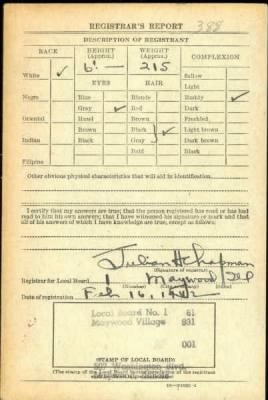 REGISTRAR'S REPORT 388
DESCRIPTION OF REGISTRANT
RACE HEIGHT (Approx.) WEIGHT (Approx.) COMPLEXION
6' — 215
White ✓ EYES HAIR Sallow
Light
Negro Blue Blonde Ruddy ✓
Gray ✓ Red Dark
Oriental Hazel Brown Freckled
Brown Black ✓ Light brown
Indian Black Gray Dark brown
Bald Black
Filipino
Other obvious physical characteristics that will aid in identification
I certify that my answers are true; that the person registered has read or has had
read to him his own answers; that I have witnessed his signature or mark and that
all of his answers of which I have knowledge are true, except as follows:
Julian H Chapman
(Signature of registrar)
Registrar for Local Board 1 Maywood Ill
(Number) (City or county) (State)
Date of registration Feb 16, 1942
Local Board No. 1 61
Maywood Village 931
001
(STAMP OF LOCAL BOARD)
(The stamp of the Local Board having jurisdiction of the registrant